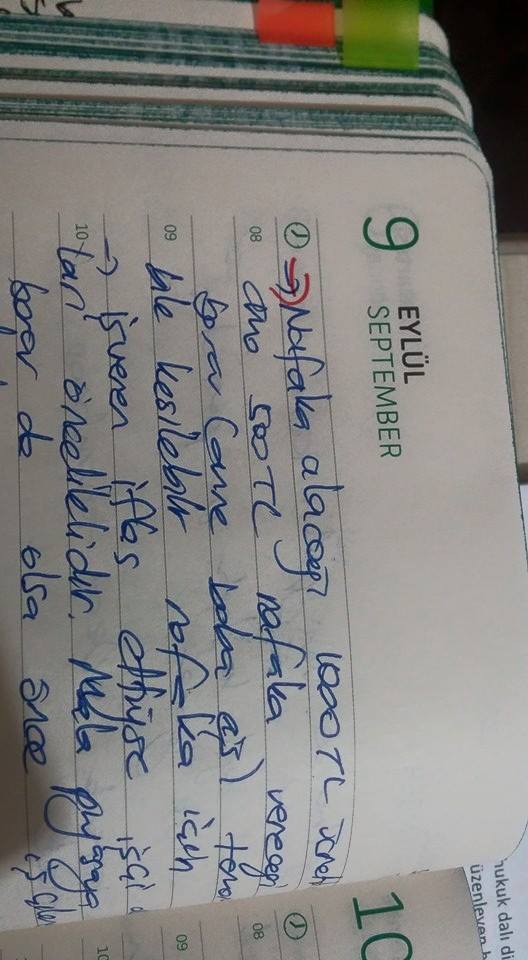 hukuk dalı di
üzenleyen
9 EYLÜL
SEPTEMBER
10
→ Nafaka alacağı 1000 TL ücreti
08 ama 500 TL nafaka vereceği
borcu (anne baba eş)
09 bile kesilebilir nafaka için
→ işveren iflas ettiyse işçi
10 ları önceliklidir. Mala piyasaya
borcu da olsa önce işçiler
08
09
10